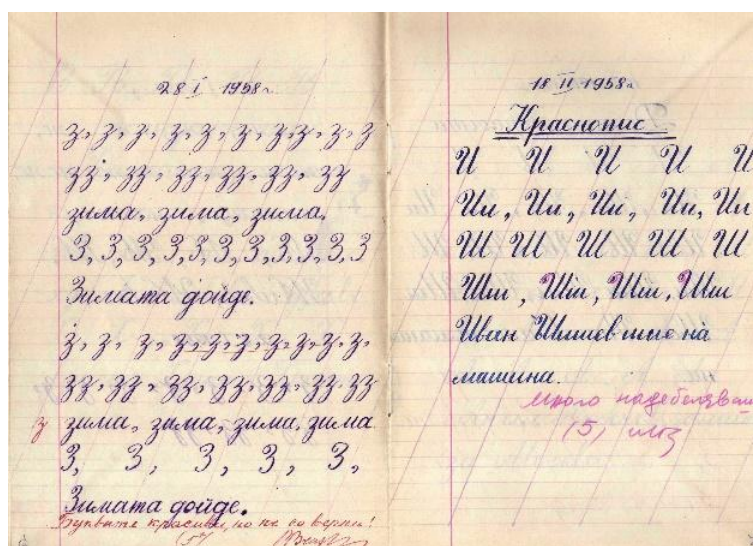 28 I 1958 г.
з, з, з, з, з, з, з, з, з, з, з
зз, зз, зз, зз, зз, зз, зз
зима, зима, зима.
З, З, З, З, З, З, З, З, З, З, З
Зимата дойде.
з, з, з, з, з, з, з, з, з, з, з.
зз, зз, зз, зз, зз, зз, зз
з
зима, зима, зима, зима
З, З, З, З, З,
Зимата дойде.
Буквите красиви, но не са верни!
(5)
18 II 1958 г.
Краснопис
И И И И И
Ии, Ии, Ии, Ии, Ии
Ш Ш Ш Ш Ш
Шш, Шш, Шш, Шш
Иван Шишев шие на
машина.
много надебеляваш
(5)